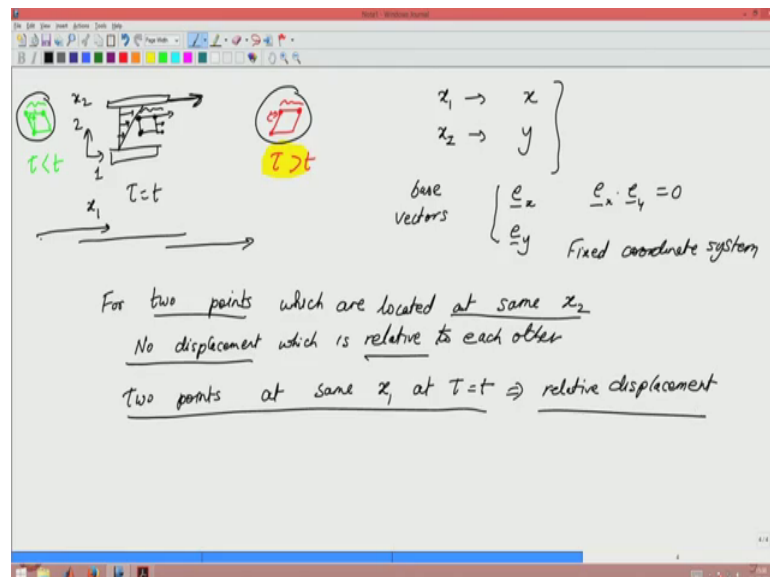 Note1 - Windows Journal
File Edit View Insert Actions Tools Help
Page Width
B I
x₂
2
1
τ<t
τ=t
τ>t
x₁
x₁ → x
x₂ → y
base vectors
e_x
e_y
e_x · e_y = 0
Fixed coordinate system
For two points which are located at same x₂
No displacement which is relative to each other
Two points at same x₁ at τ=t ⇒ relative displacement